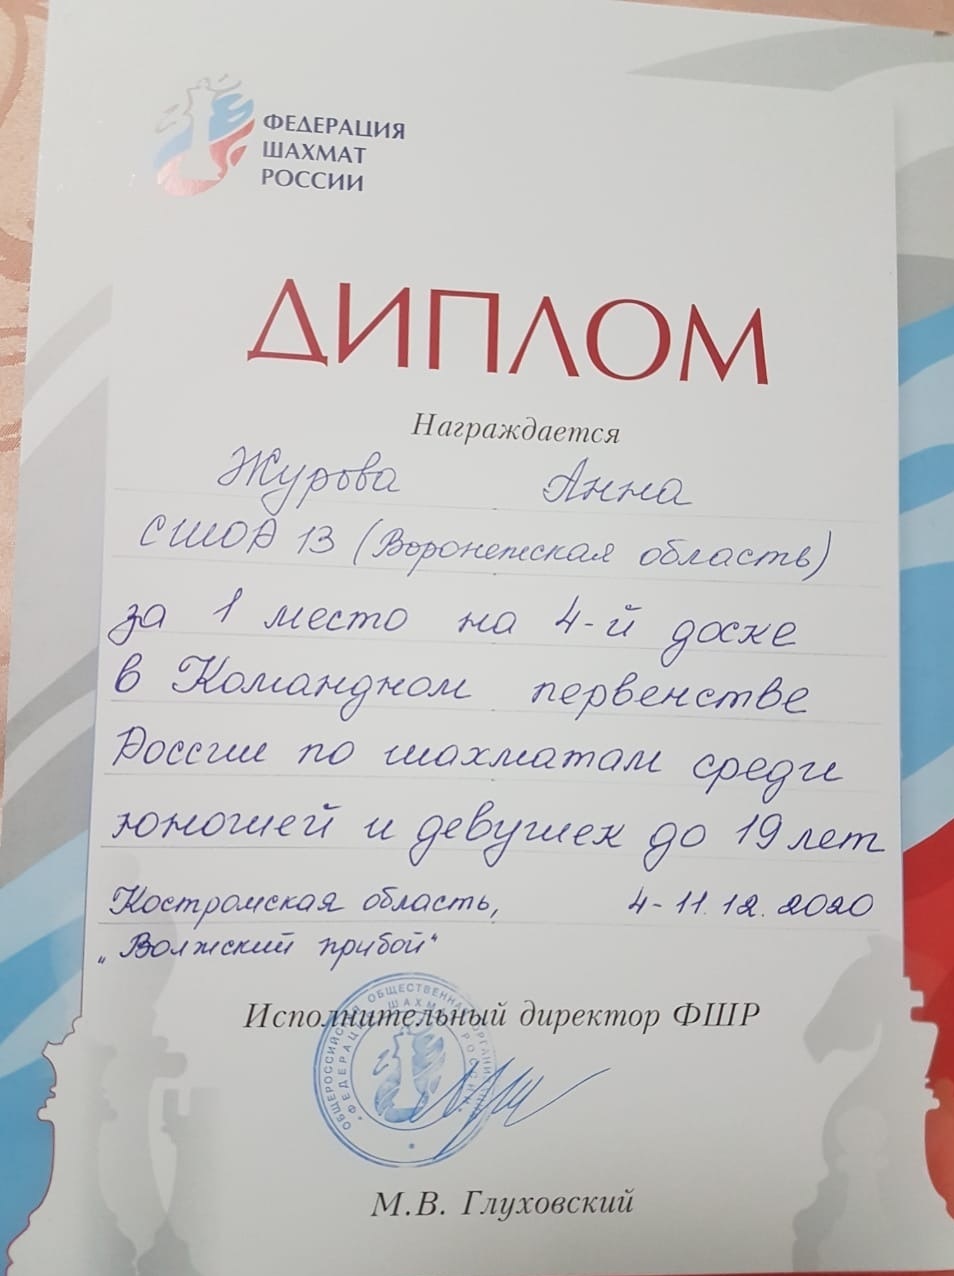 ФЕДЕРАЦИЯ
ШАХМАТ
РОССИИ
ДИПЛОМ
Награждается
Журова Анна
СШОР 13 (Воронежская область)
за 1 место на 4-й доске
в Командном первенстве
России по шахматам среди
юношей и девушек до 19 лет
Костромская область, 4-11.12.2020
„Волжский прибой"
Исполнительный директор ФШР
ОБЩЕРОССИЙСКАЯ ОБЩЕСТВЕННАЯ ОРГАНИЗАЦИЯ
"ФЕДЕРАЦИЯ ШАХМАТ РОССИИ"
М.В. Глуховский